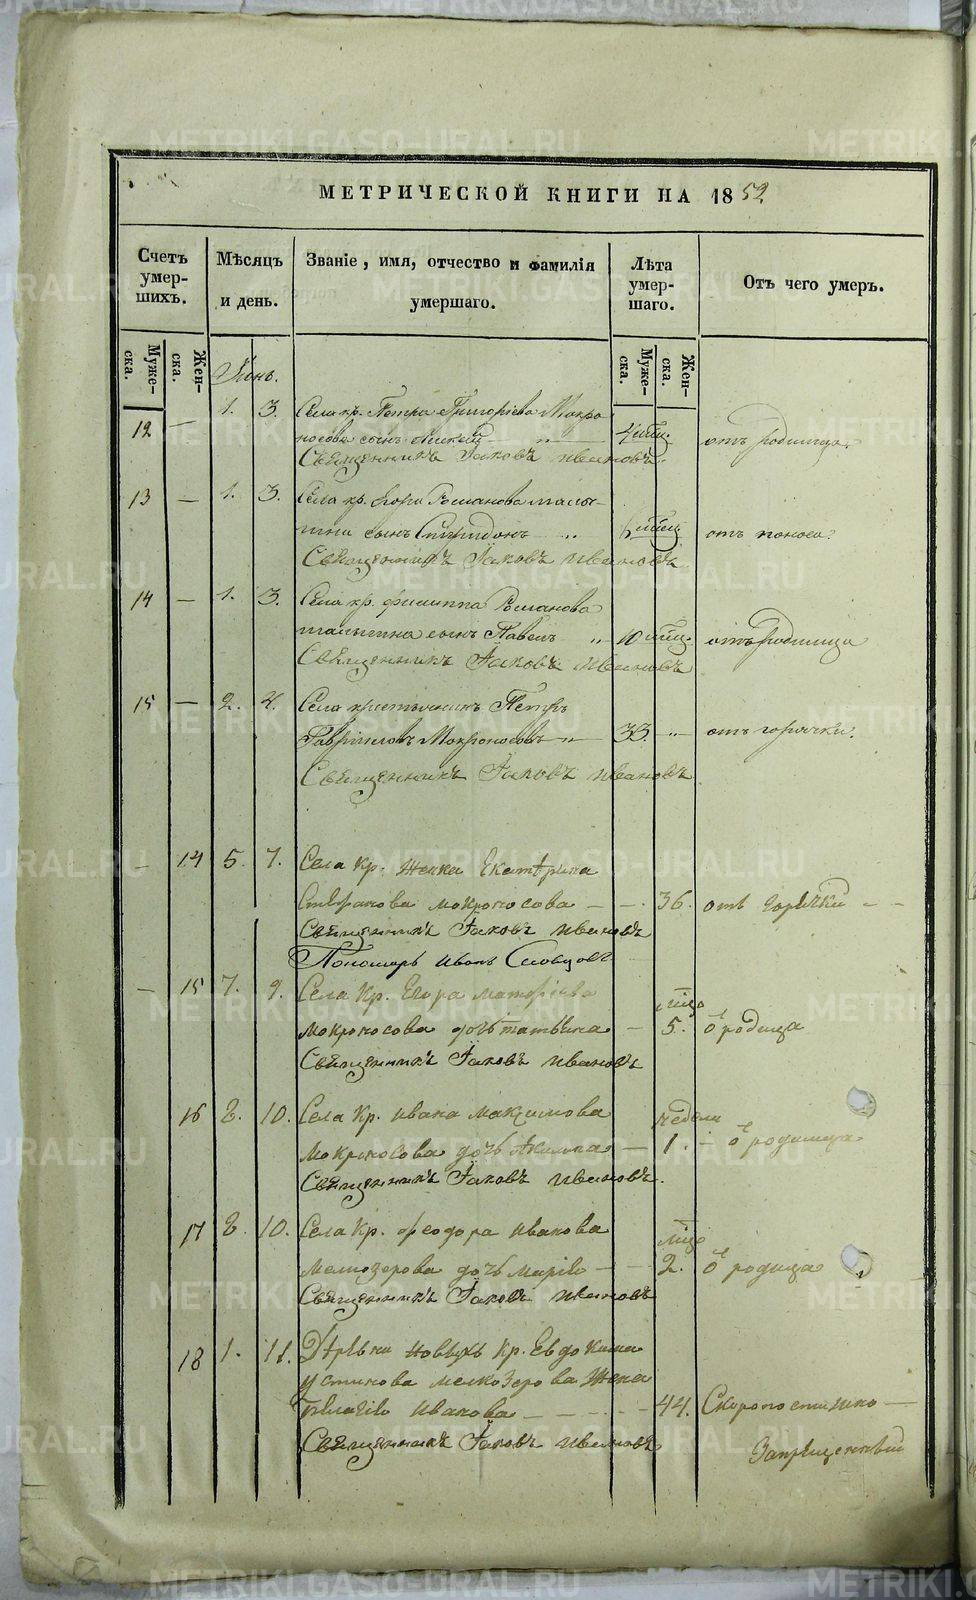 МЕТРИЧЕСКОЙ КНИГИ НА 1852
Счетъ умер-шихъ.
Мѣсяцъ и день.
Званіе, имя, отчество и фамилія умершаго.
Лѣта умер-шаго.
Отъ чего умеръ.
Муже-ска.
Жен-ска.
Муже-ска.
Жен-ска.
12 — 1. 3. Села кр. Петра Григоріева Мокро
носова сынъ Алексей „ — отъ родимца.
Священникъ Іаковъ Ивановъ.
13 — 1. 3. Села кр. Романова
сынъ Спиридонъ „ отъ поноса.
Священникъ Іаковъ Ивановъ
14 — 1. 3. Села кр. Филиппа Романова
сынъ Павелъ „ 10 отъ родимца
Священникъ Іаковъ Ивановъ
15 — 2. 4. Села крестьянинъ Петръ
Гавріиловъ Мокроносовъ „ 33. „ отъ горячки.
Священникъ Іаковъ Ивановъ
— 14 5. 7. Села Кр. Женка Екатѣрина
Стефанова Мокроносова — — 36. отъ горячки — —
Священникъ Іаковъ Ивановъ
Пономарь Иванъ Словцовъ
— 15 7. 9. Села Кр. Егора
Мокроносова дочь Татьяна — 5. родимца
Священникъ Іаковъ Ивановъ
16 8. 10. Села Кр. Ивана Максимова недели
Мокроносова дочь — 1. — родимца
Священникъ Іаковъ Ивановъ.
17 8. 10. Села Кр. Феодора Иванова
Мелкозерова дочь Марія — — 2. родимца
Священникъ Іаковъ Ивановъ
18 1. 11. Дѣрѣвни Новыхъ Кр. Евдокима
Устинова Мелкозерова Жена
Пѣлагія Иванова — — — 44. Скоропостижно —
Священникъ Іаковъ Ивановъ
METRIKI.GASO-URAL.RU